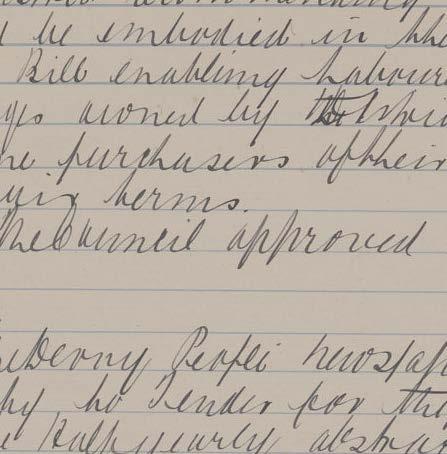 d be embodied in the
Bill enabling Labour
ys owned by
he purchasers of their
terms.
The Council approved
Derry People newspa
py to Tender for the
e Half yearly abstra